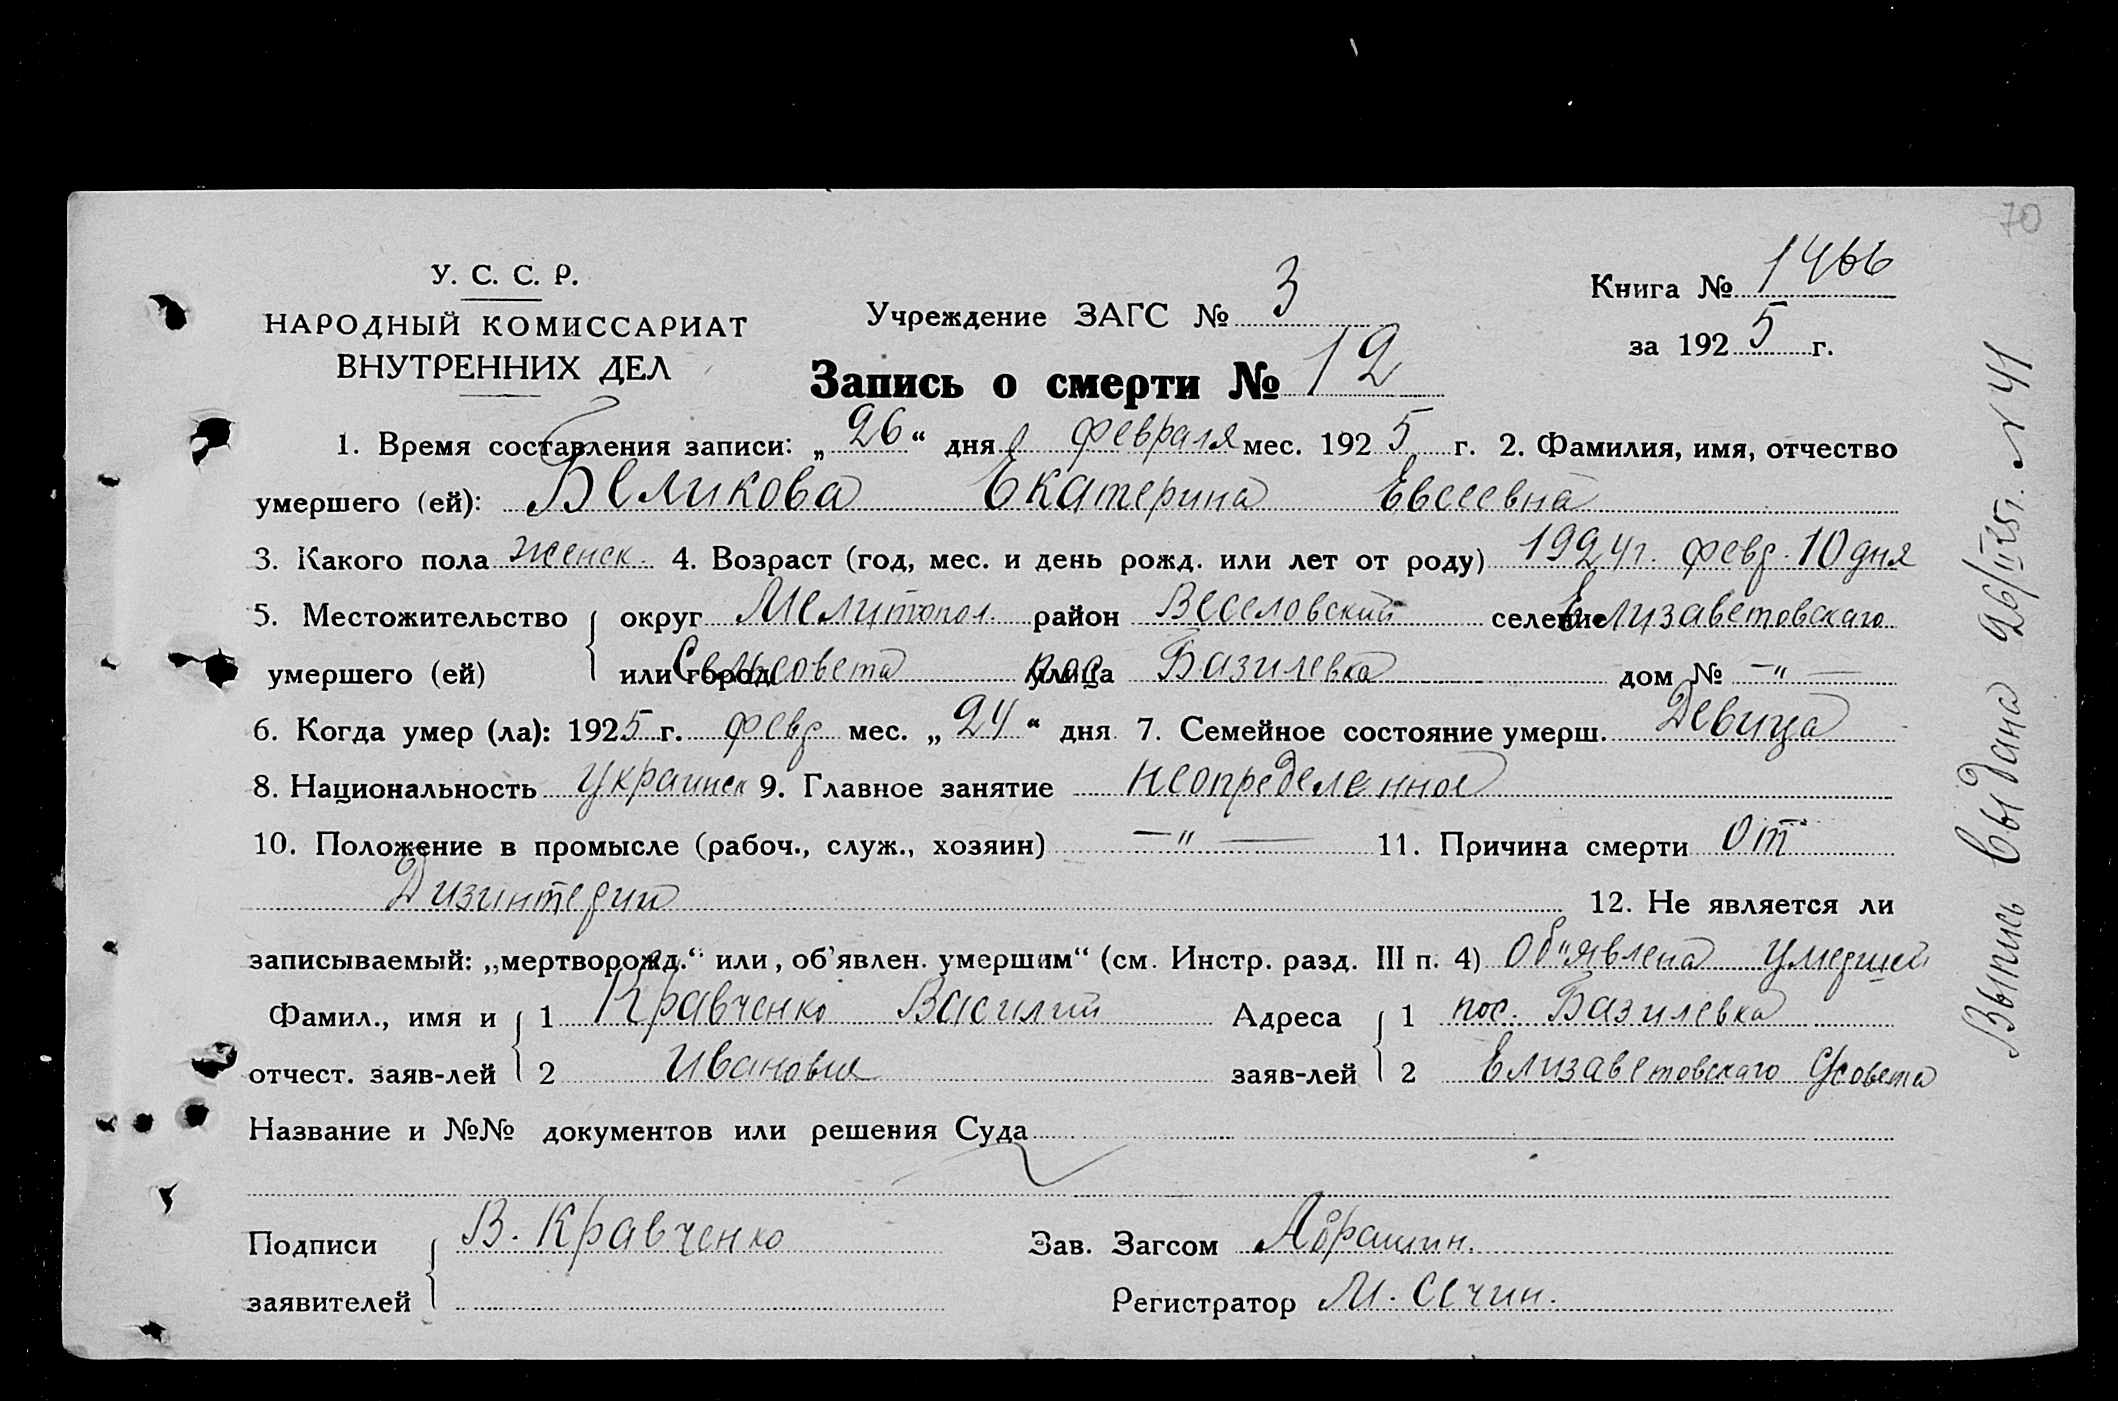 70
У. С. С. Р.
НАРОДНЫЙ КОМИССАРИАТ
ВНУТРЕННИХ ДЕЛ
Учреждение ЗАГС № 3
Книга № 1466
за 1925 г.
Запись о смерти № 12
1. Время составления записи: „26“ дня февраля мес. 1925 г. 2. Фамилия, имя, отчество
умершего (ей): Беликова Екатерина Евсеевна
3. Какого пола женск. 4. Возраст (год, мес. и день рожд. или лет от роду) 1924 г. февр. 10 дня
5. Местожительство { округ Мелитопол. район Веселовский селение Елизаветовскаго
умершего (ей) или город Сельсовета улица пос. Базилевка дом № —"—
6. Когда умер (ла): 1925 г. февр мес. „24“ дня 7. Семейное состояние умерш. Девица
8. Национальность украинск 9. Главное занятие неопределенное
10. Положение в промысле (рабоч., служ., хозяин) —"— 11. Причина смерти от
Дизинтерии 12. Не является ли
записываемый: „мертворожд.“ или, об'явлен. умершим“ (см. Инстр. разд. III п. 4) Об"явлена умершей
Фамил., имя и { 1 Кравченко Василий Адреса { 1 пос. Базилевка
отчест. заяв-лей 2 Иванович заяв-лей 2 Елизаветовскаго С/совета
Название и №№ документов или решения Суда
Подписи { В. Кравченко Зав. Загсом Абрашин.
заявителей Регистратор М. Сечин.
Выпись выдана 26/II 25 г. № 41